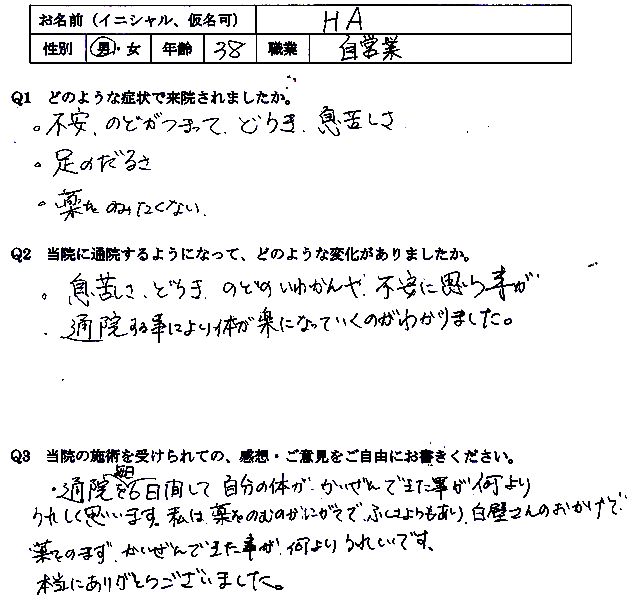 お名前（イニシャル、仮名可） HA
性別 男・女 年齢 38 職業 自営業
Q1 どのような症状で来院されましたか。
。不安、のどがつまって、どうき、息苦しさ
。足のだるさ
。薬をのみたくない、
Q2 当院に通院するようになって、どのような変化がありましたか。
。息苦しさ、どうき、のどのいわかんや、不安に思う事が
通院する事により体が楽になっていくのがわかりました。
Q3 当院の施術を受けられての、感想・ご意見をご自由にお書きください。
・通院を毎日6日間して自分の体が、かいぜんできた事が何より
うれしく思います。私は薬をのむのがにがてで、ふしょうもあり、白壁さんのおかげで
薬をのまず、かいぜんできた事が、何よりうれしいです、
本当にありがとうございました。